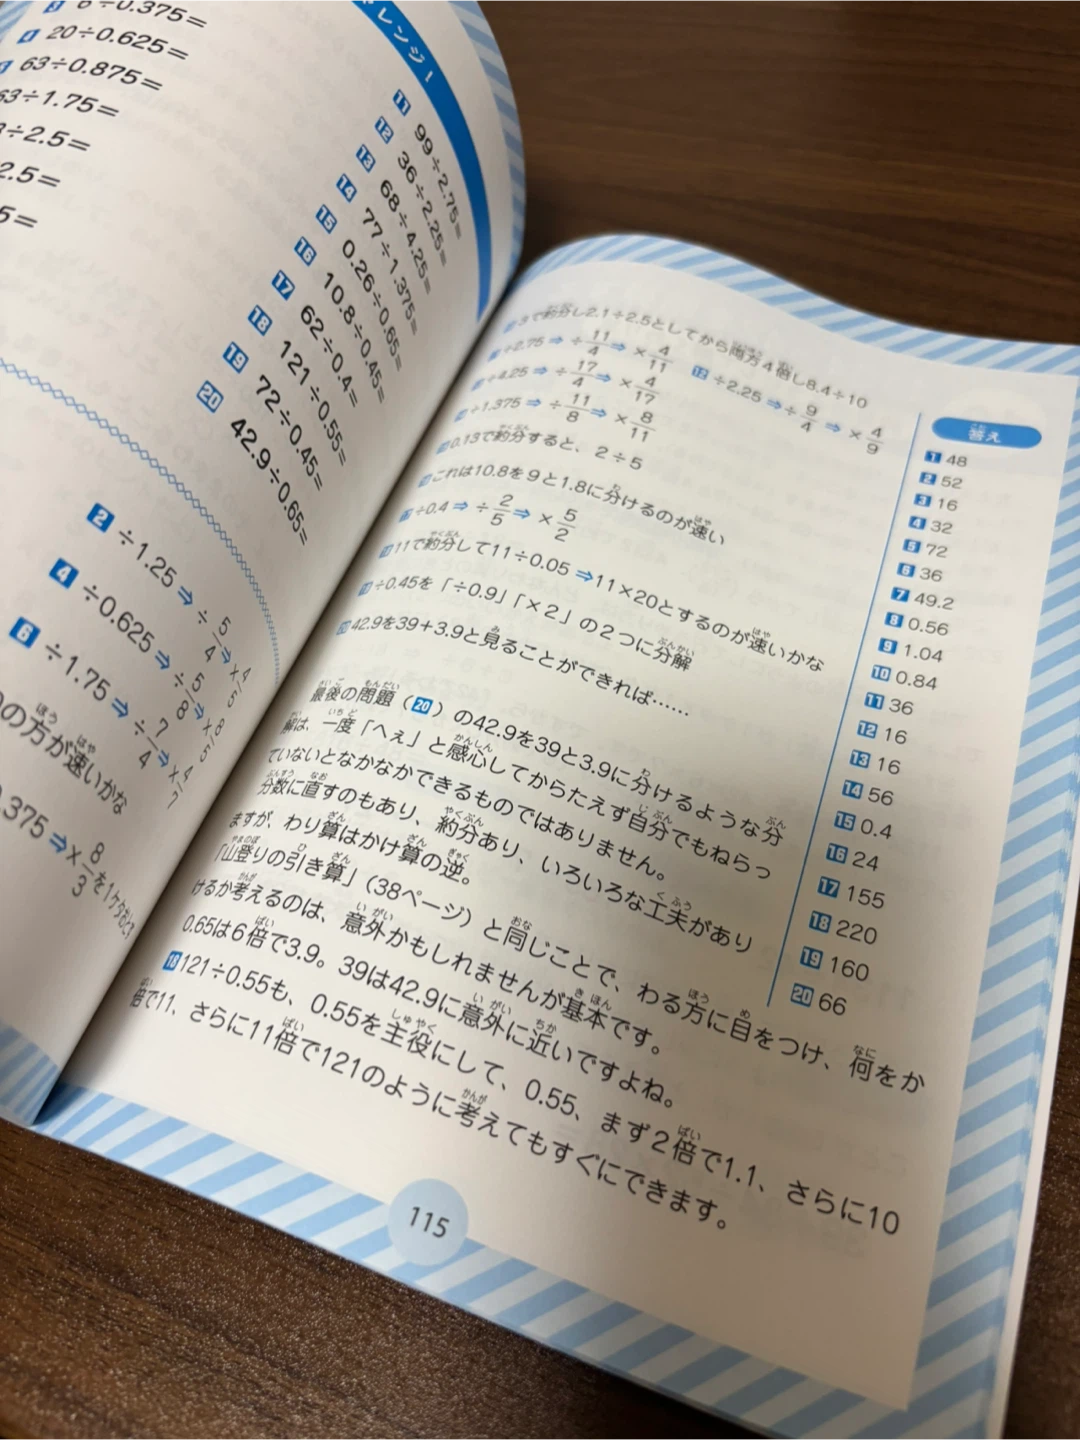 レンジ！
3 6÷0.375=
4 20÷0.625=
63÷0.875=
63÷1.75=
÷2.5=
2.5=
5=
11 99÷2.75=
12 36÷2.25=
13 68÷4.25=
14 77÷1.375=
15 0.26÷0.65=
16 10.8÷0.45=
17 62÷0.4=
18 121÷0.55=
19 72÷0.45=
20 42.9÷0.65=
2 ÷1.25⇒÷5/4⇒×4/5
4 ÷0.625⇒÷5/8⇒×8/5
6 ÷1.75⇒÷7/4⇒×4/7
の方が速いかな
0.375⇒×8/3を1ケタむと3
3で約分し2.1÷2.5としてから両方4倍し8.4÷10
÷2.75⇒÷11/4⇒×4/11 12 ÷2.25⇒÷9/4⇒×4/9
÷4.25⇒÷17/4⇒×4/17
÷1.375⇒÷11/8⇒×8/11
0.13で約分すると、2÷5
これは10.8を9と1.8に分けるのが速い
÷0.4⇒÷2/5⇒×5/2
11で約分して11÷0.05⇒11×20とするのが速いかな
÷0.45を「÷0.9」「×2」の2つに分解
42.9を39+3.9と見ることができれば……
最後の問題（20）の42.9を39と3.9に分けるような分
解は、一度「へぇ」と感心してからたえず自分でもねらっ
ていないとなかなかできるものではありません。
分数に直すのもあり、約分あり、いろいろな工夫があり
ますが、わり算はかけ算の逆。
「山登りの引き算」（38ページ）と同じことで、わる方に目をつけ、何をか
けるか考えるのは、意外かもしれませんが基本です。
0.65は6倍で3.9。39は42.9に意外に近いですよね。
18 121÷0.55も、0.55を主役にして、0.55、まず2倍で1.1、さらに10
倍で11、さらに11倍で121のように考えてもすぐにできます。
答え
1 48
2 52
3 16
4 32
5 72
6 36
7 49.2
8 0.56
9 1.04
10 0.84
11 36
12 16
13 16
14 56
15 0.4
16 24
17 155
18 220
19 160
20 66
115